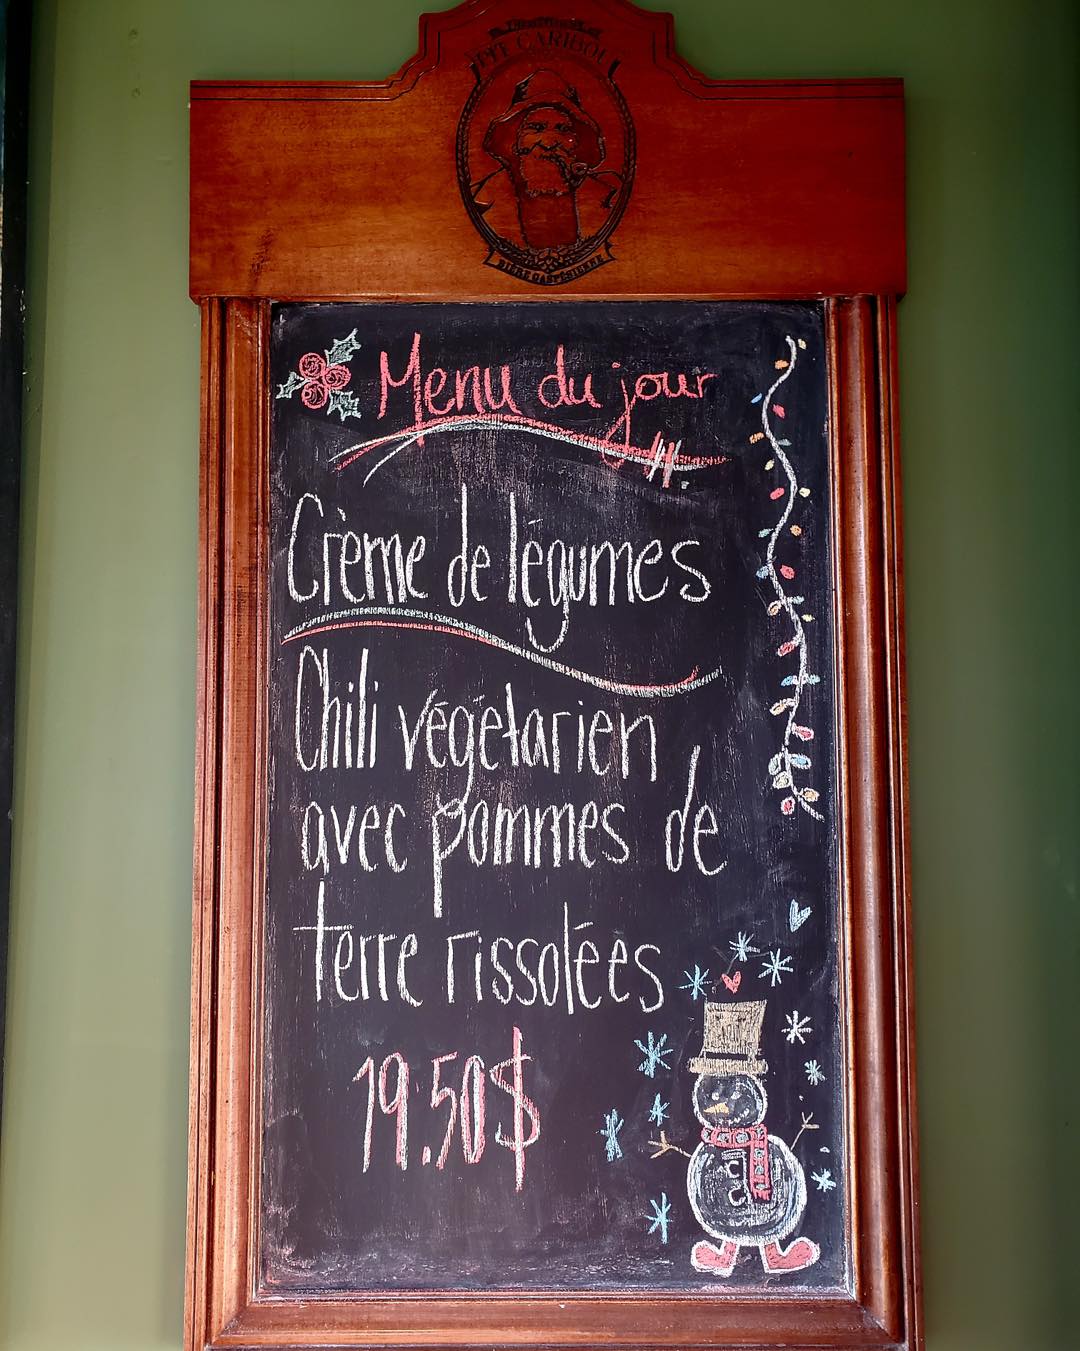 PIT CARIBOU
BIÈRE GASPÉSIENNE
Menu du jour
Crème de légumes
Chili végétarien
avec pommes de
terre rissolées
19.50$